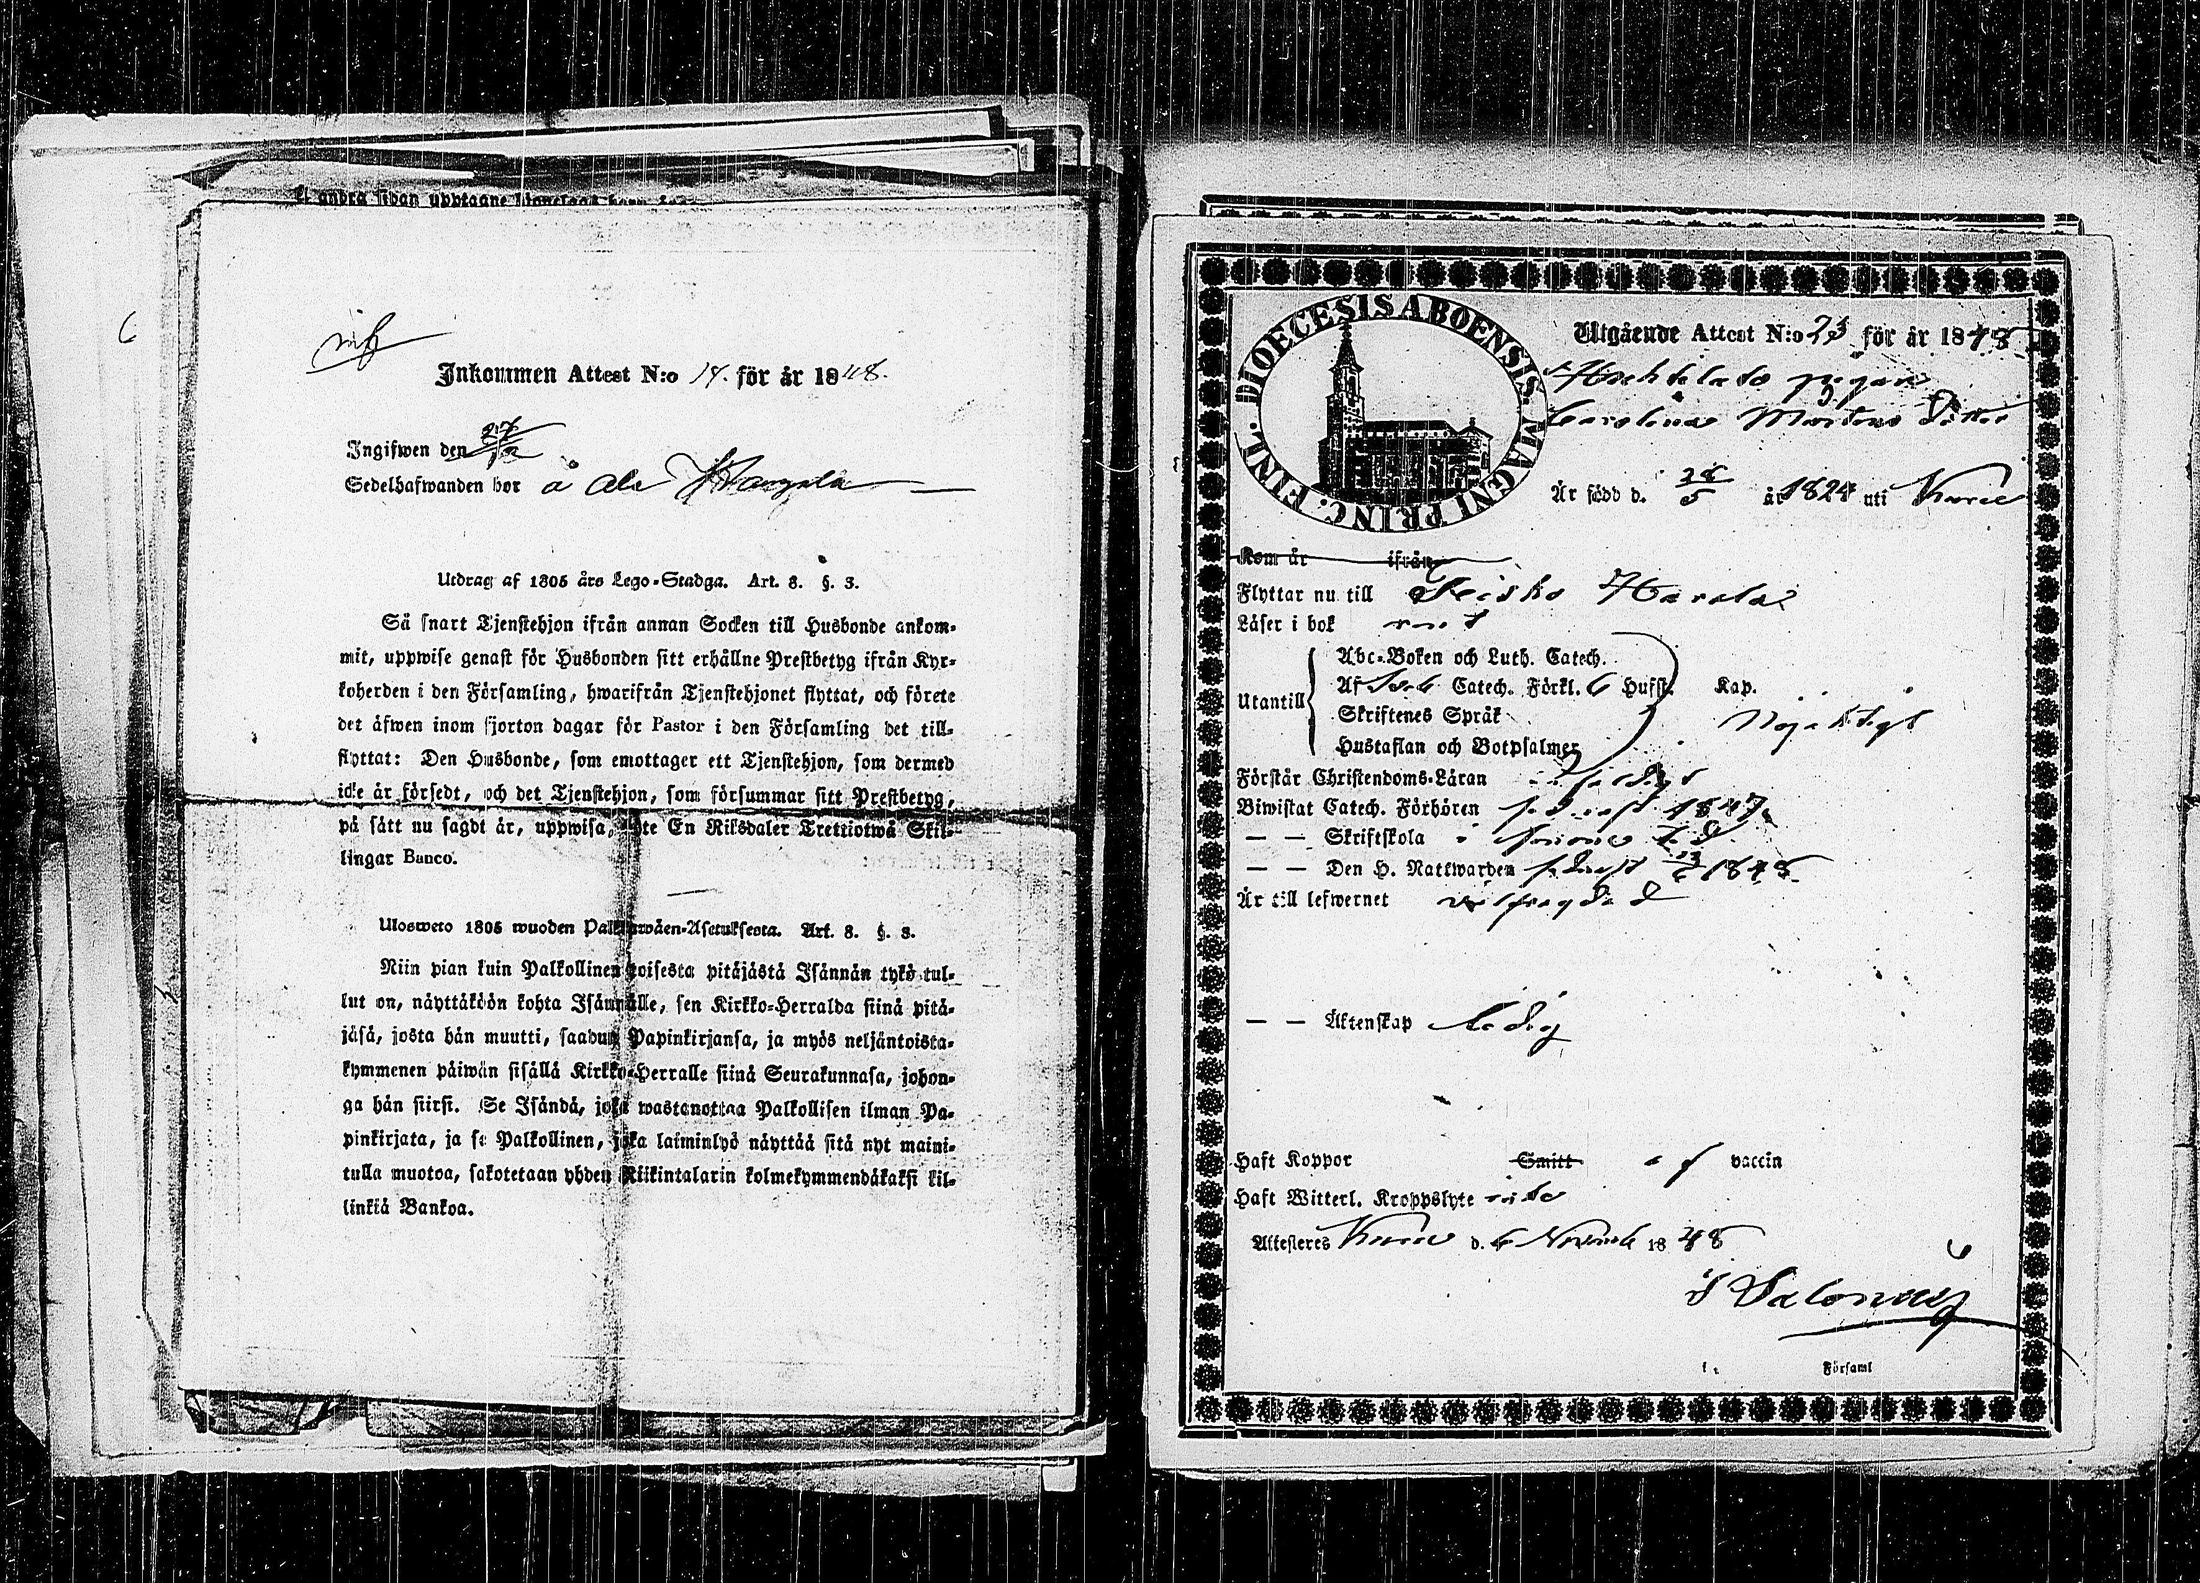 6
Inkommen Attest N:o 14. för år 1848.
Ingifwen den 27/12
Sedelhafwanden bor å Ala
Utdrag af 1805 års Lego-Stadga. Art. 8. §. 3.
Så snart Tjenstehjon ifrån annan Socken till Husbonde ankom-
mit, uppwise genast för Husbonden sitt erhållne Prestbetyg ifrån Kyr-
koherden i den Församling, hwarifrån Tjenstehjonet flyttat, och förete
det äfwen inom fjorton dagar för Pastor i den Församling det till-
flyttat: Den Husbonde, som emottager ett Tjenstehjon, som dermed
icke är försedt, och det Tjenstehjon, som försummar sitt Prestbetyg,
på sätt nu sagdt är, uppwisa, böte En Riksdaler Trettiotwå Skil-
lingar Banco.
Ulosweto 1805 wuoden Palkkawäen-Asetuksesta. Art. 8. §. 3.
Niin pian kuin Palkollinen toisesta pitäjästä Isännän tykö tul-
lut on, näyttäköön kohta Isännälle, sen Kirkko-Herralda siinä pitä-
jäsä, josta hän muutti, saadun Papinkirjansa, ja myös neljäntoista-
kymmenen päiwän sisällä Kirkko-Herralle siinä Seurakunnasa, johon-
ga hän siirsi. Se Isändä, joka wastanottaa Palkollisen ilman Pa-
pinkirjata, ja se Palkollinen, joka laiminlyö näyttää sitä nyt maini-
tulla muotoa, sakotetaan yhden Riikintalarin kolmekymmendäkaksi kil-
linkiä Bankoa.
DIOECESIS ABOENSIS. MAGNI PRINC. FINL.
Utgående Attest N:o 23 för år 1848
pigan
Carolina Mårtens Dotter
Är född d. 28/5 år 1824 uti Kuru
Kom år ifrån
Flyttar nu till Teisko
Läser i bok rent
Utantill
Abc-Boken och Luth. Catech.
Af Catech. Förkl. 6 Hufst. Kap.
Skriftenes Språk
Hustaflan och Botpsalmer
Nöjaktigt
Förstår Christendoms-Läran
Biwistat Catech. Förhören sednast 1847
— — Skriftskola i
— — Den H. Nattwarden sednast 1848
Är till lefwernet välfrägdad
— — Äktenskap ledig
Haft Koppor Smitt af vaccin
Haft Witterl. Kroppslyte inte
Attesteres Kuru d. 6 Novemb 1848
Salonius
i Församl